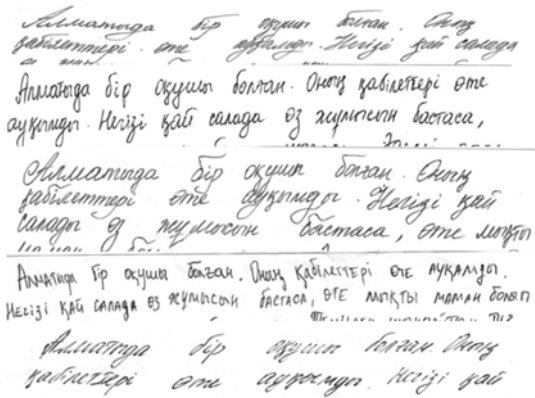 Алматыда бір оқушы болған. Оның
қабілеттері өте ауқымды. Негізі қай салада
Алматыда бір оқушы болған. Оның қабілеттері өте
ауқымды. Негізі қай салада өз жұмысын бастаса,
Алматыда бір оқушы болған. Оның
қабілеттері өте ауқымды. Негізі қай
салады өз жұмосын бастаса, өте мықты
Алматыда бір оқушы болған. Оның қабілеттері өте ауқамды.
Негізі қай салада өз жұмысын бастаса, өте мықты маман болып
Алматыда бір оқушы болған. Оның
қабілеттері өте ауқымды. Негізі қай